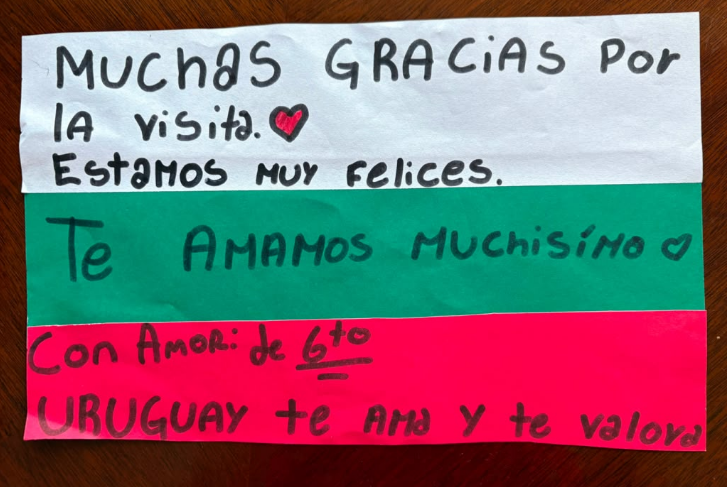 MUCHAS GRACiAS Por
lA visita.
EstaMOS MUY Felices.
Te AMAMOS MUChisíMO
Con AMOR: de 6to
URUGUAY te AMa Y te valora